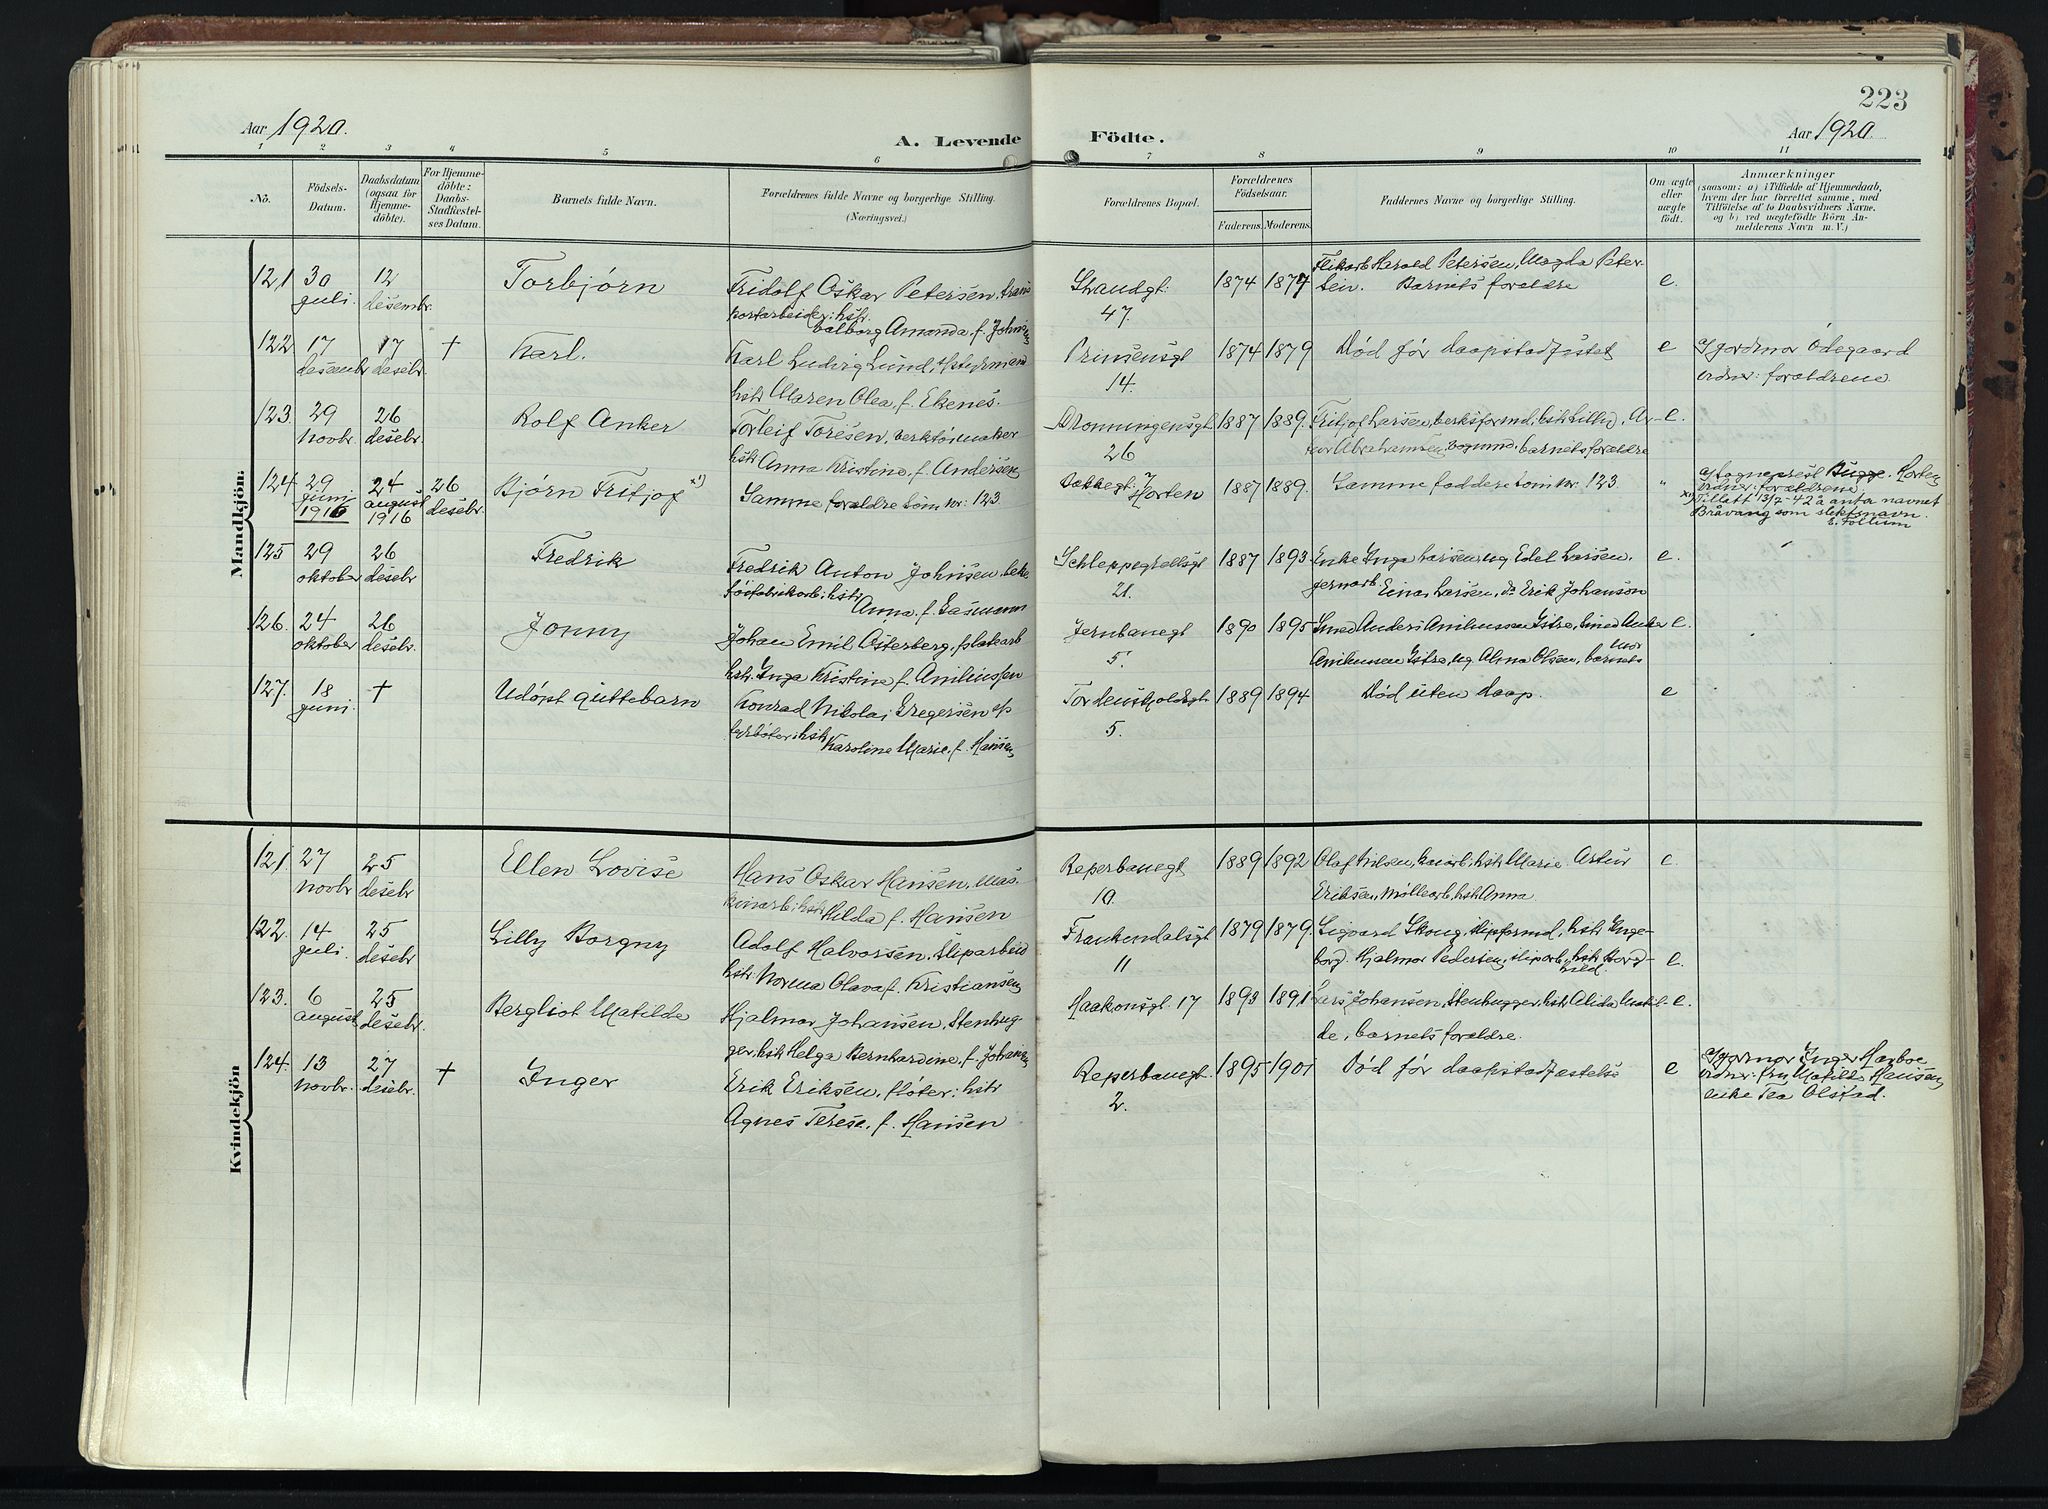 223
Aar 1920.
A. Levende Födte.
Aar 1920.
1 2 3 4 5 6 7 8 9 10 11
No.
Födsels-Datum.
Daabsdatum (ogsaa for Hjemmedöbte).
For Hjemmedöbte: Daabs-Stadfæstelses Datum.
Barnets fulde Navn.
Forældrenes fulde Navne og borgerlige Stilling.
(Næringsvei.)
Forældrenes Bopæl.
Forældrenes Födselsaar.
Faderens. Moderens.
Faddernes Navne og borgerlige Stilling.
Om ægte eller uægte födt.
Anmærkninger
(saasom: a) i Tilfælde af Hjemmedaab,
hvem der har forrettet samme, med
Tilföielse af to Daabsvidners Navne.
og b) ved uægtefödte Börn An-
melderens Navn m. V.)
Mandkjön.
121 30 juli. 12 desembr. Torbjørn
Fridolf Oskar Petersen, trans
portarbeider: hstr.
Valborg Amanda f. Johnsen
Strandgt. 47.
1874 1877
Harold Petersen, Magda Peter-
sen. Barnets forældre
e.
122 17 desembr 17 desebr. + Karl.
Karl Ludvig Lund, styrmand
hstr Maren Olea, f. Ekenes.
Prinsensgt 14.
1874 1879
Død før daapstadfæstet
e
Gjordmor Ødegaard
vidner: forældrene.
123. 29 novbr. 26 desebr. Rolf Anker
Torleif Toresen, verktøimaker
hstr Anna Kristine, f. Andersen
Dronningensgt. 26
1887 1889.
Fritjof Larsen, verksformd, hstr Lilly, Ar-
Abrahamsen, barnets forældre
e.
124. 29 juni 1916 24 august 1916 26 desebr. Bjørn Fritjof x)
Samme forældre som nr. 123
Horten
1887 1889.
Samme faddere som nr. 123
"
Sogneprest Bugge. Horten
vidner: forældrene
x) Tillatt 13/2-42 å anta navnet
Bråvang som slektsnavn.
E. Follum
125 29 oktober 26 desebr. Fredrik
Fredrik Anton Johnsen,
hstr
Anna, f. Gasmann
Schleppegrellsgt 21.
1887 1893
Enke Inga Larsen, ug Edel Larsen,
jernarb. Einar Larsen, do Erik Johanson
e.
126. 24 oktober 26 desebr. Jonny
Johan Emil Østerberg, platearb
hstr. Inga Kristine f. Amliussen
Jernbanegt 5.
1890 1895
Smed Anders Amliussen Istre,
Amliussen Istre, ug Alma Olsen, barnets
mor
e.
127. 18 juni. + Udöpt guttebarn
Konrad Nikolai Gregersen
fyrböter: hstr
Karoline Marie, f. Hansen
Tordenskioldsgt. 5.
1889 1894
Død uten daap.
e
Kvindekjön
121. 27 novbr 25 desebr Ellen Lovise
Hans Oskar Hansen, Mas-
kinarb: hstr Hilda f. Hansen
Reperbanegt 10.
1889 1892
Olaf Nilsen, hstr Marie, Artur
Eriksen, Møllearb, hstr Anna
e.
122. 14 juli. 25 desebr Lilly Borgny
Adolf Halvorsen, Sliparbeid
hstr. Norma Olava f. Kristiansen
Frankendalsgt 11
1879 1879.
Sigvard Skoug, slipformd, hstr Inge-
borg. Hjalmar Pedersen, sliparb, hstr Borg-
hild.
e.
123. 6 august 25 desebr. Bergliot Matilde
Hjalmar Johansen, Stenhug-
ger, hstr Helga Bernhardine, f. Johansen
Haakonsgt. 17
1893 1891
Lars Johansen, Stenhugger, hstr Alida Matil-
de, barnets forældre.
e.
124. 13 novbr. 27 desebr. + Inger
Erik Eriksen, fløter: hstr
Agnes Terese, f. Hansen
Reperbanegt. 2.
1895 1901
Død før daapstadfæstelse
e
Gjormor Inger Harboe
vidner: fru Matilde Hansen,
enke Tea Olstad.